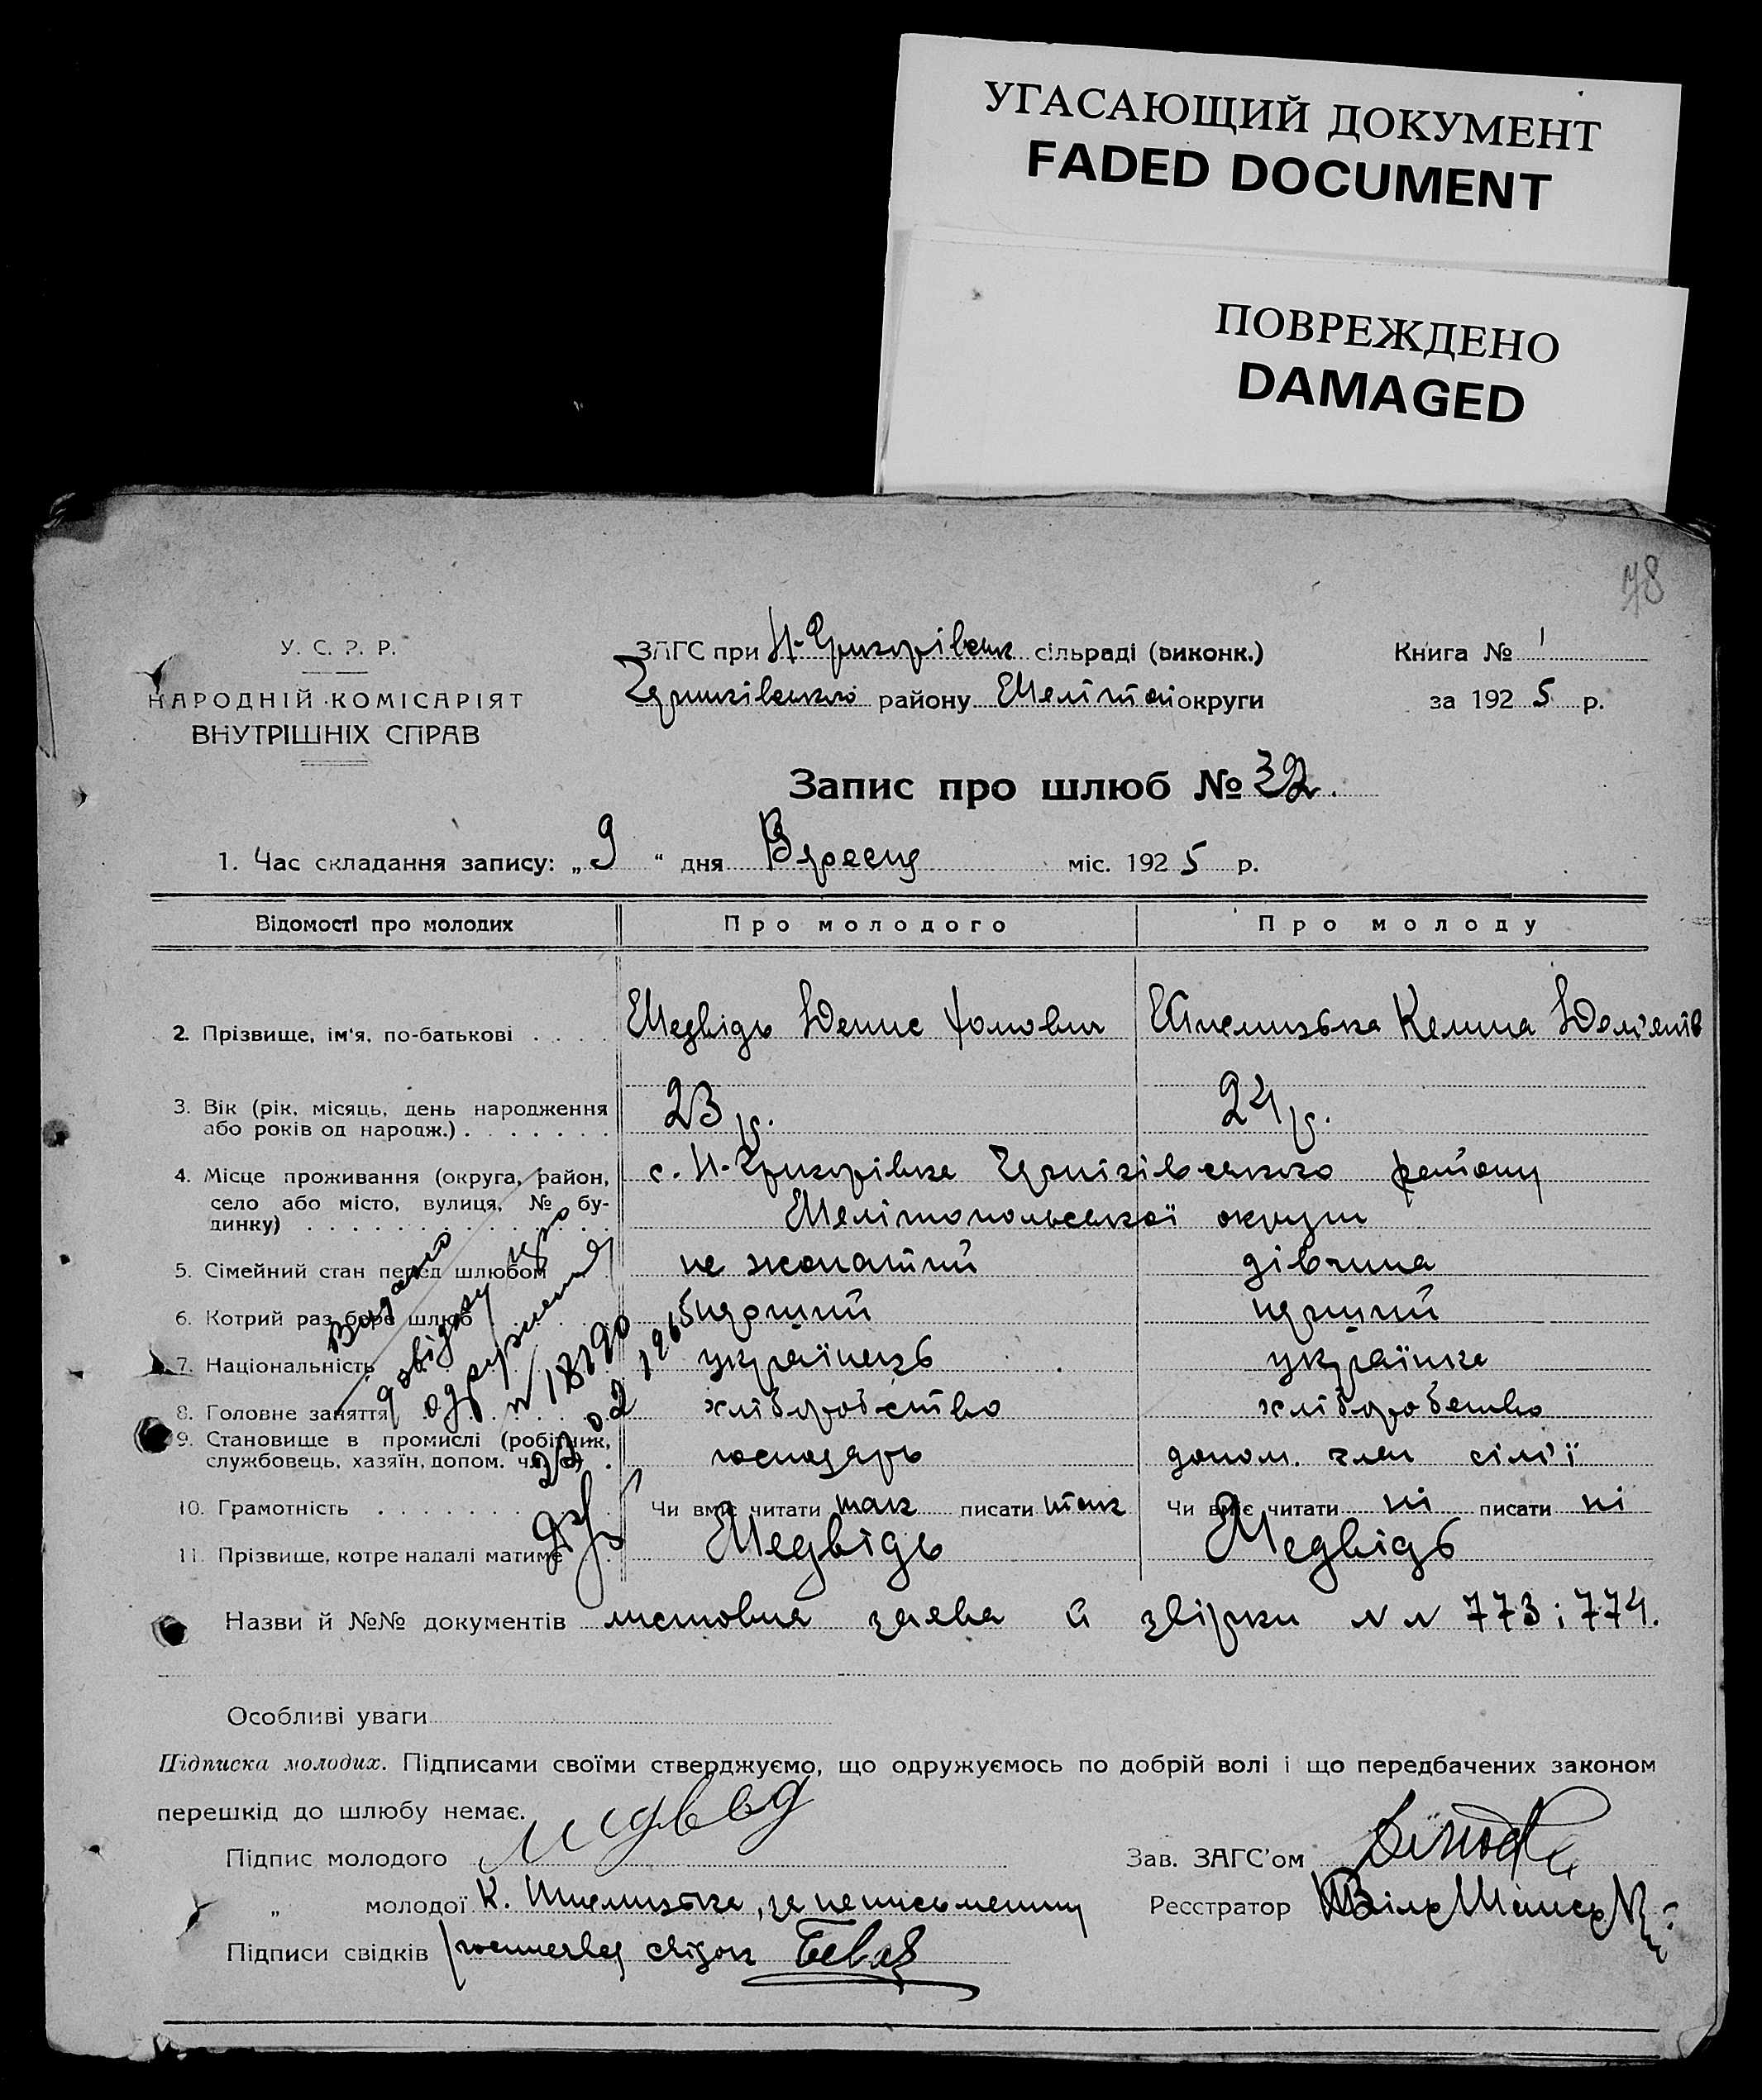 УГАСАЮЩИЙ ДОКУМЕНТ
FADED DOCUMENT
ПОВРЕЖДЕНО
DAMAGED
78
У. С. Р. Р.
НАРОДНІЙ КОМІСАРІЯТ
ВНУТРІШНІХ СПРАВ
ЗАГС при Н-Григорівськ сільраді (виконк.)
району Мелітоп округи
Книга № 1
за 1925 р.
Запис про шлюб № 32.
1. Час складання запису: „ 9 “ дня Вересня міс. 1925 р.
Відомості про молодих Про молодого Про молоду
2. Прізвище, ім'я, по-батькові . . . . Медвідь Денис Хомович Келина Дем'янів
3. Вік (рік, місяць, день народження
або років од народж.) . . . . . . . 23 р. 24 р.
4. Місце проживання (округа, район,
село або місто, вулиця, № бу-
динку) . . . . . . . . . . . . с. Н-Григорівка Чернігівського району
Мелітопольської округи
5. Сімейний стан перед шлюбом не жонатий дівчина
6. Котрий раз бере шлюб перший перший
7. Національність українець українка
8. Головне заняття хліборобство хліборобство
9. Становище в промислі (робітник,
службовець, хазяїн, допом. чл. с.) господарь допом. член сім'ї
10. Грамотність . . . . . . . . Чи вміє читати так писати так Чи вміє читати ні писати ні
11. Прізвище, котре надалі матиме Медвідь Медвідь
Видано
довідку про
одруження
№ 18190
02 1965
Назви й №№ документів листовна заява й звірки № № 773 і 774.
Особливі уваги
Підписка молодих. Підписами своїми стверджуємо, що одружуємось по добрій волі і що передбачених законом
перешкід до шлюбу немає.
Підпис молодого Зав. ЗАГС'ом
„ молодої К. за неписьменну
Реєстратор
Підписи свідків свідок